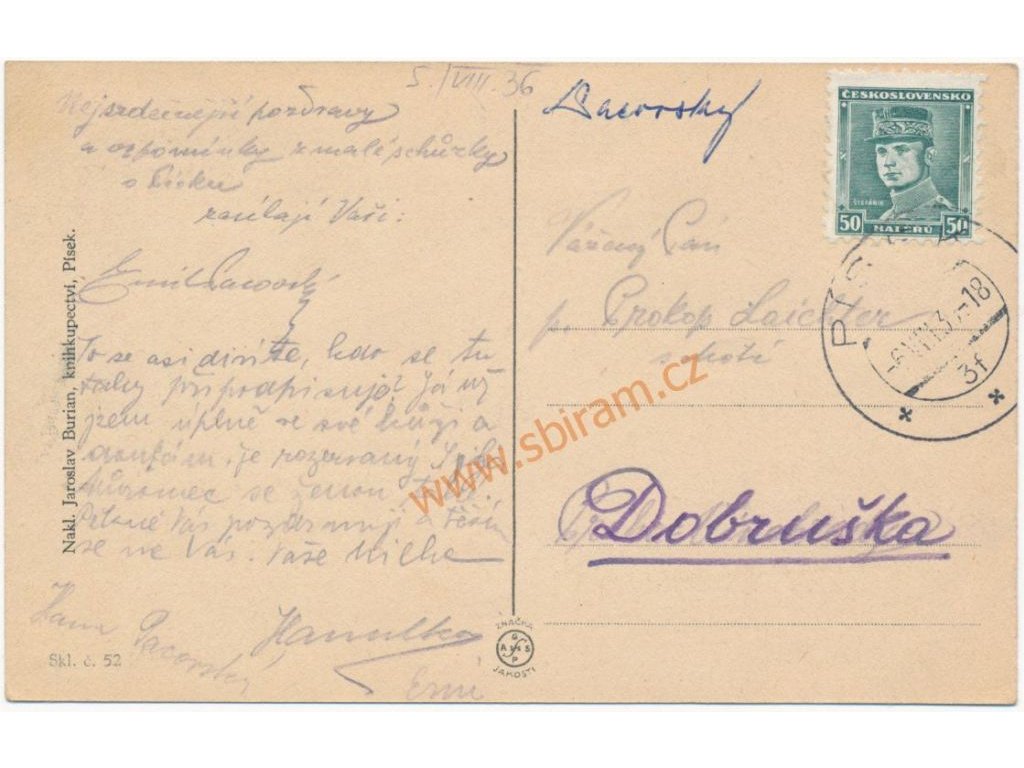 5./VIII.36
Nejsrdečnější pozdravy
a vzpomínky z malé schůzky
v Písku
zasílají Vaši:
Emil Pacovský
To se asi divíte, kdo se tu
taky připodpisují? Já už
jsem úplně ve své kůži a
doufám, že
se ženou také.
Vás pozdravují a těším
se na Vás. Vaše
Hana Pacovský
Hanulka
Nakl. Jaroslav Burian, knihkupectví, Písek.
Skl. č. 52
ZNAČKA
JAKOSTI
Pacovský
ČESKOSLOVENSKO
ŠTEFÁNIK
50 HALÉRŮ 50
PÍSEK
3f
Vážený Pán
p. Prokop Laichter
s chotí
Dobruška
www.sbiram.cz